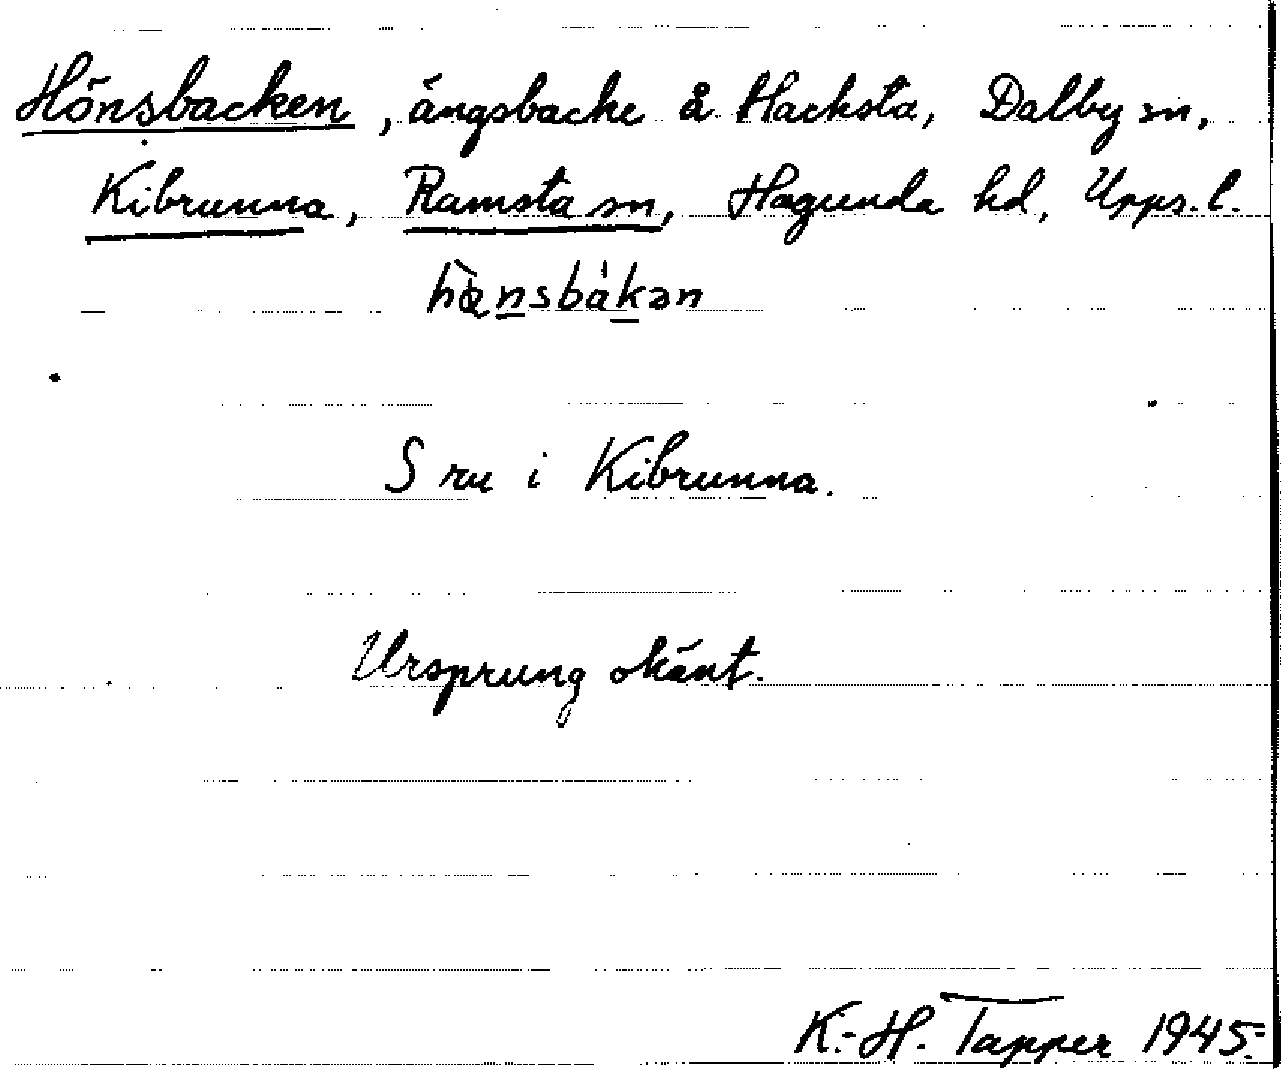 Hönsbacken, ängsbacke å Hacksta, Dalby sn,
Kibrunna, Ramsta sn, Hagunda hd, Upps. l.
S ru i Kibrunna.
Ursprung okänt.
K.-H. Tapper 1945.